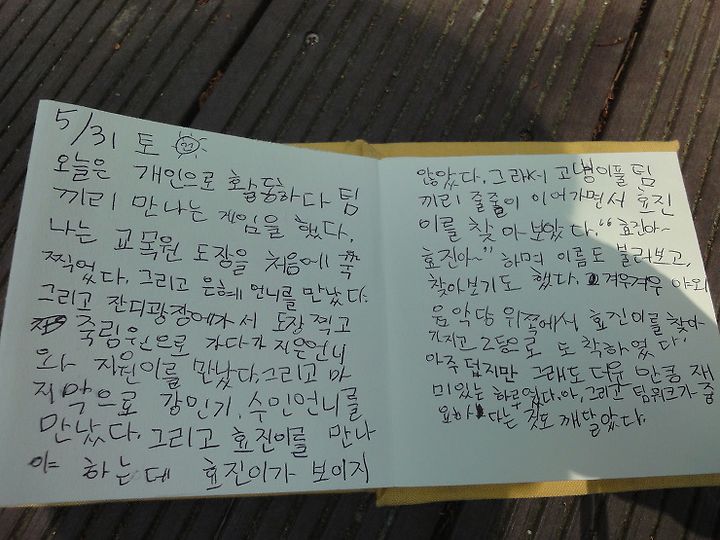 5/31 토
오늘은 개인으로 활동하다 팀
끼리 만나는 게임을 했다.
나는 교목원 도장을 처음에 쿡
찍었다. 그리고 은혜 언니를 만났다.
그리고 잔디광장에가서 도장 찍고
죽림원으로 가다가 지은언니
와 지원이를 만났다. 그리고 마
지막으로 강인기, 수인언니를
만났다. 그리고 효진이를 만나
야 하는데 효진이가 보이지
않았다. 그래서 고냉이풀 팀
끼리 줄줄이 이어가면서 효진
이를 찾아보았다. "효진아~
효진아~" 하며 이름도 불러보고,
찾아보기도 했다. 겨우겨우 야외
음악당 위쪽에서 효진이를 찾아
가지고 2등으로 도착하였다.
아주 덥지만 그래도 더운 만큼 재
미있는 하루였다. 아, 그리고 팀워크가 중
요하다는 것도 깨달았다.